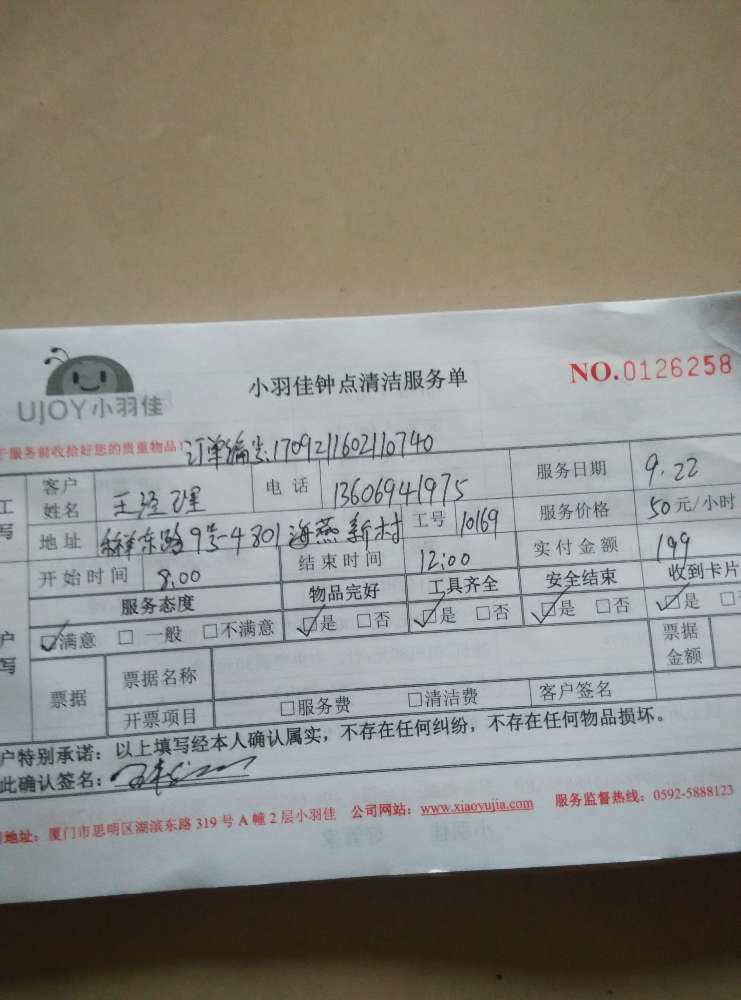 UJOY小羽佳
小羽佳钟点清洁服务单
NO.0126258
于服务前收拾好您的贵重物品!
订单编号:1709211602110740
工
写
客户姓名 王经理 电话 13606941975 服务日期 9.22
地址 祥东路9号-4 801海燕新村 工号 10169 服务价格 50元/小时
开始时间 8:00 结束时间 12:00 实付金额 199
服务态度 物品完好 工具齐全 安全结束 收到卡片
☑满意 □一般 □不满意 ☑是 □否 ☑是 □否 ☑是 □否 ☑是 □
户
写
票据 票据名称 票据金额
开票项目 □服务费 □清洁费 客户签名
户特别承诺:以上填写经本人确认属实,不存在任何纠纷,不存在任何物品损坏。
此确认签名:
地址:厦门市思明区湖滨东路319号A幢2层小羽佳 公司网站:www.xiaoyujia.com 服务监督热线:0592-5888123